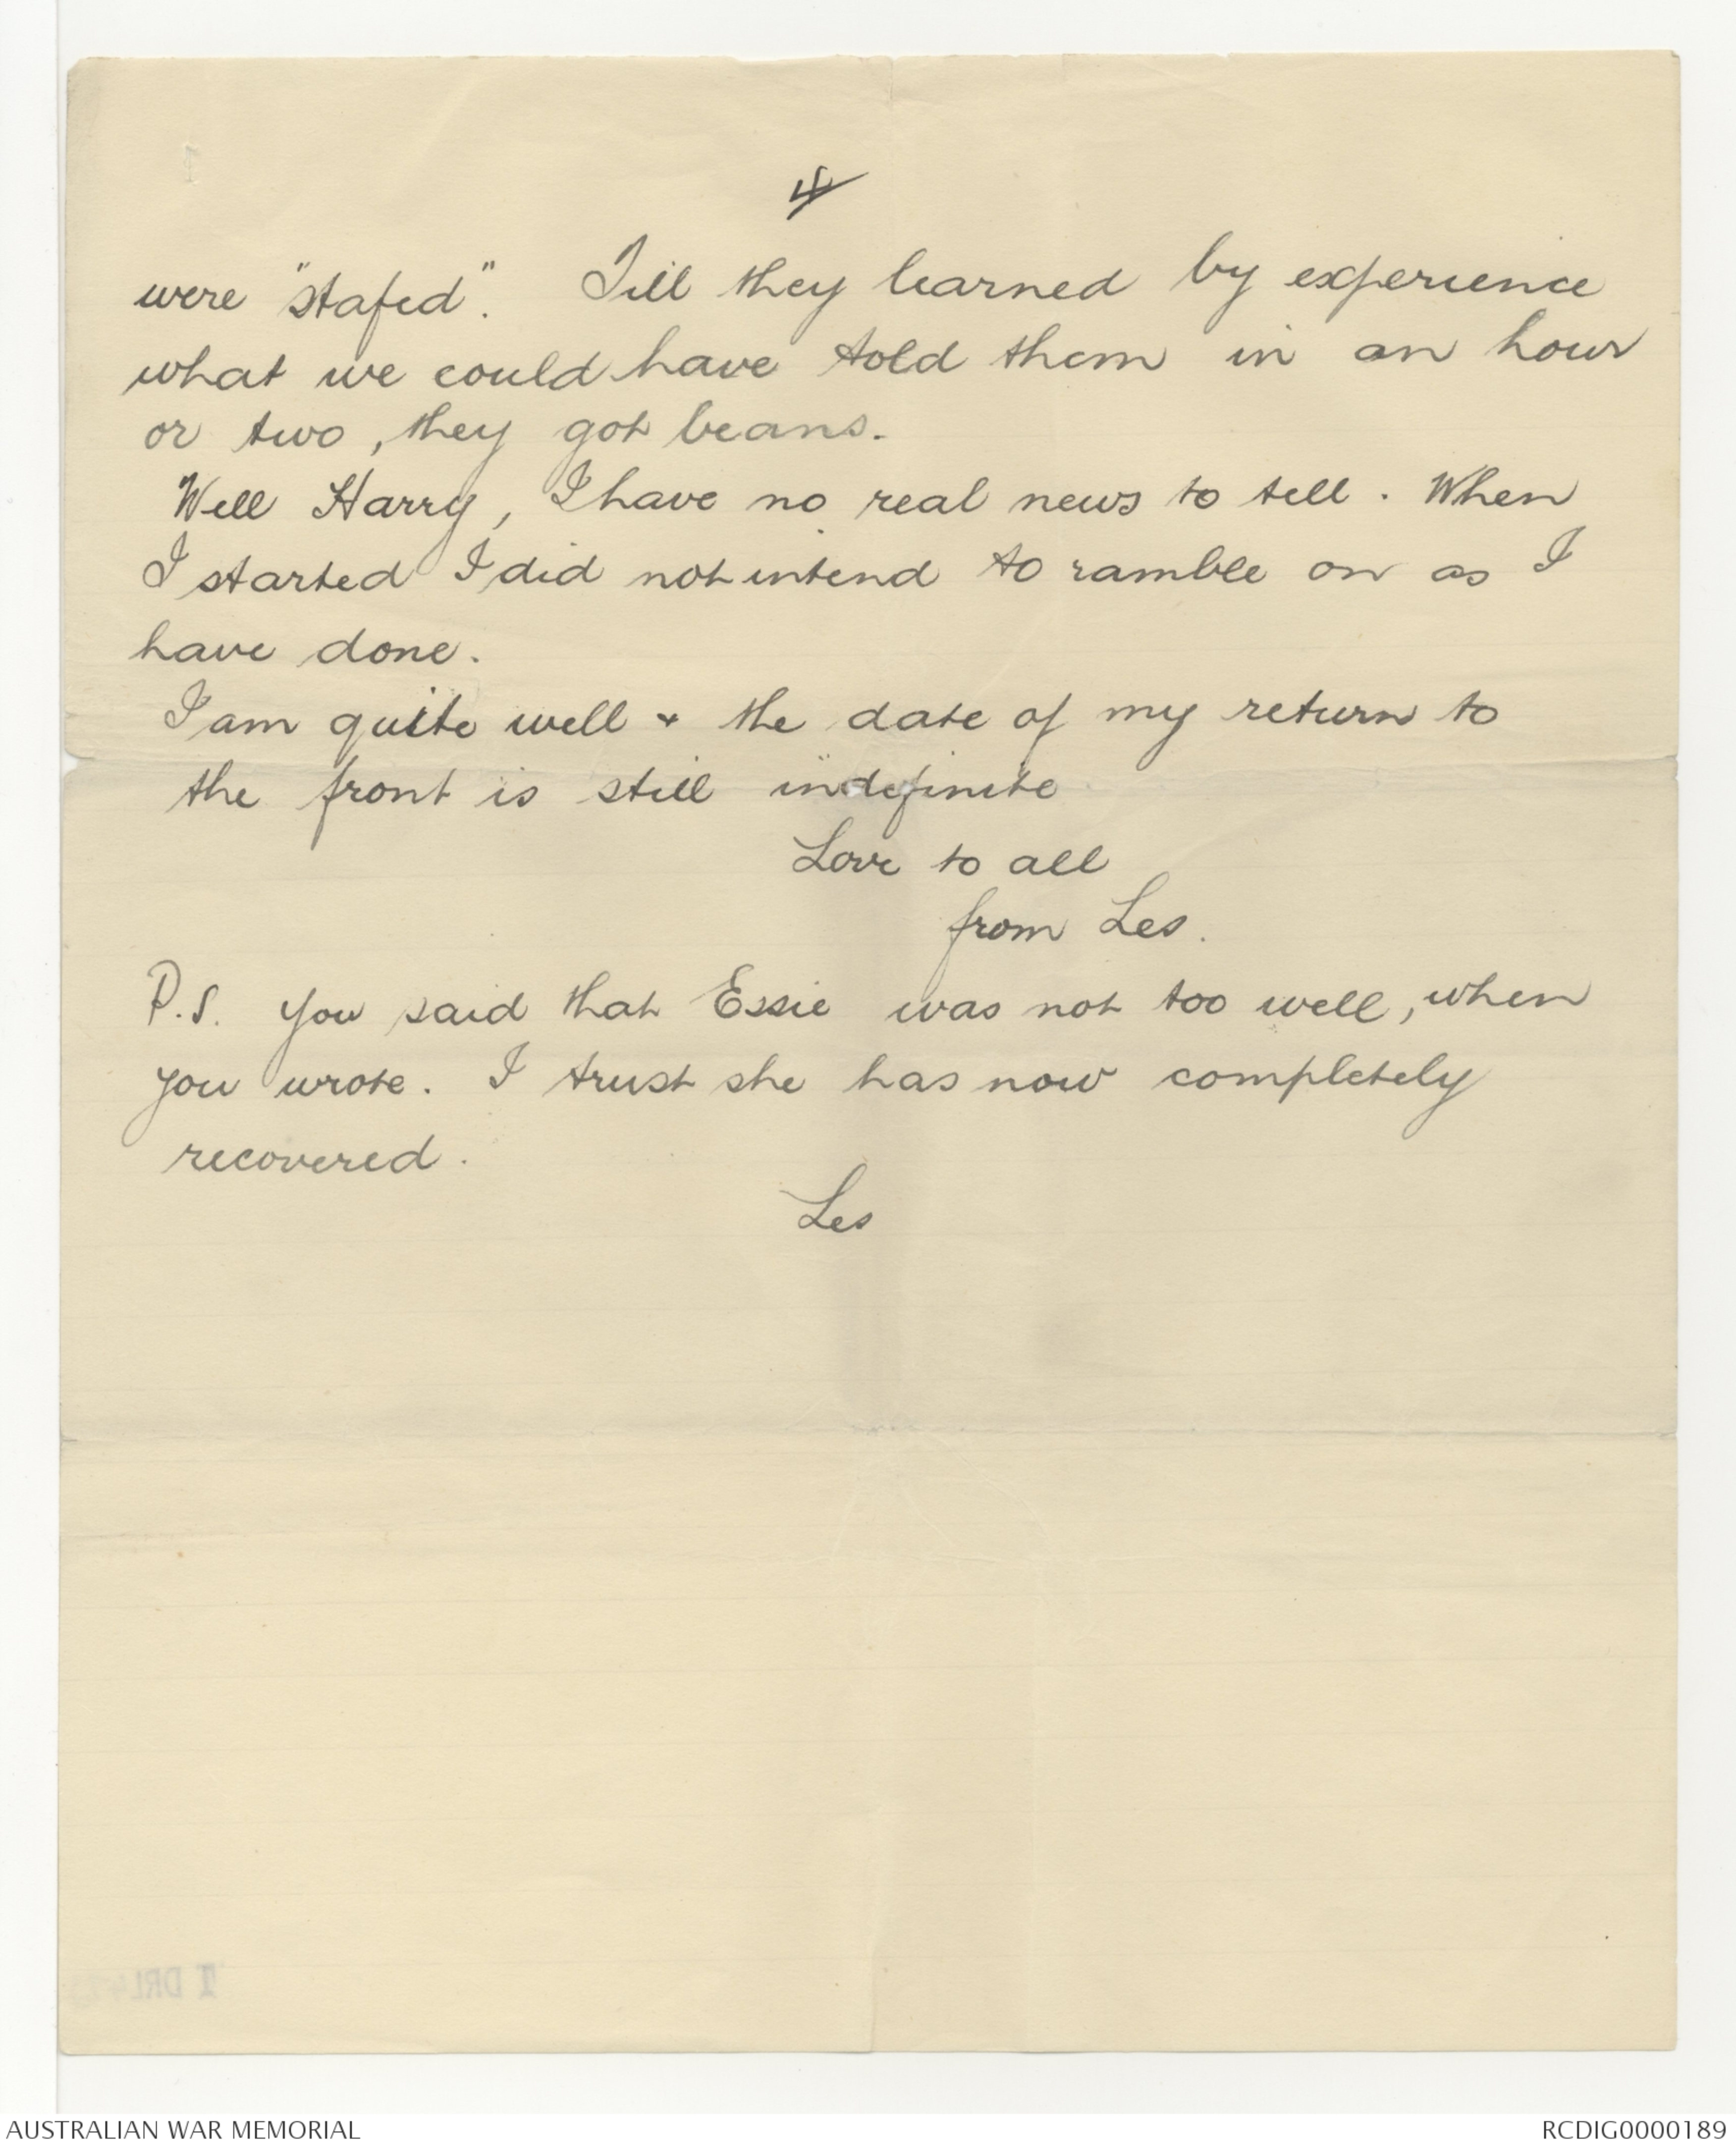 4
were "stafed". Till they learned by experience
what we could have told them in an hour
or two, they got beans.
Well Harry, I have no real news to tell. When
I started I did not intend to ramble on as I
have done.
I am quite well & the date of my return to
the front is still indefinite
Love to all
from Les.
P.S. You said that Essie was not too well, when
you wrote. I trust she has now completely
recovered.
Les
AUSTRALIAN WAR MEMORIAL
RCDIG0000189